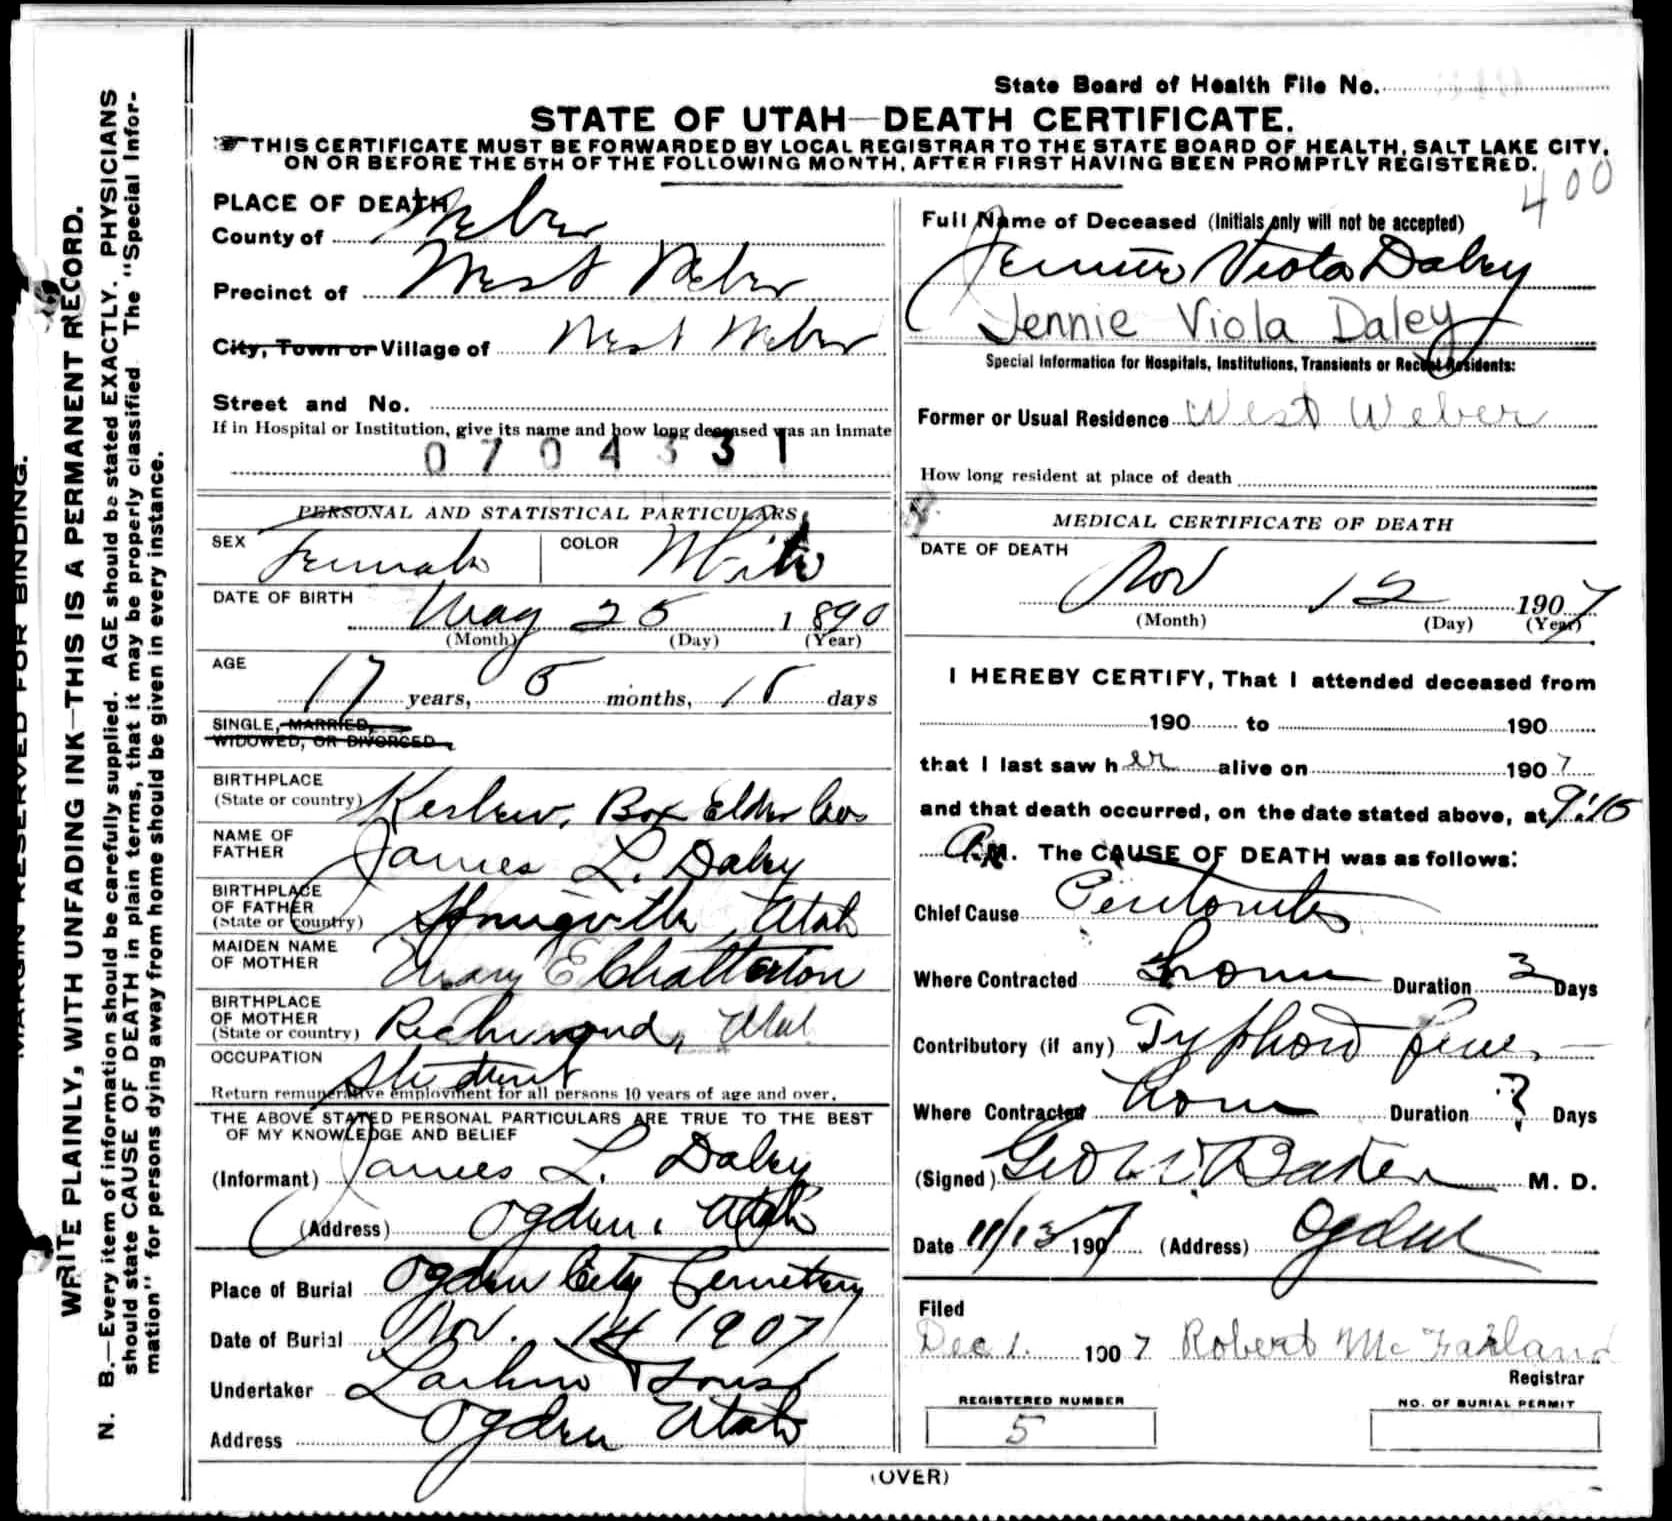 State Board of Health File No.
STATE OF UTAH—DEATH CERTIFICATE.
THIS CERTIFICATE MUST BE FORWARDED BY LOCAL REGISTRAR TO THE STATE BOARD OF HEALTH, SALT LAKE CITY,
ON OR BEFORE THE 5TH OF THE FOLLOWING MONTH, AFTER FIRST HAVING BEEN PROMPTLY REGISTERED.
400
MARGIN RESERVED FOR BINDING.
WRITE PLAINLY, WITH UNFADING INK—THIS IS A PERMANENT RECORD.
N. B.—Every item of information should be carefully supplied. AGE should be stated EXACTLY. PHYSICIANS
should state CAUSE OF DEATH in plain terms, that it may be properly classified. The "Special Infor-
mation" for persons dying away from home should be given in every instance.
PLACE OF DEATH
County of Weber
Precinct of West Weber
City, Town or Village of West Weber
Street and No.
If in Hospital or Institution, give its name and how long deceased was an Inmate
0704331
PERSONAL AND STATISTICAL PARTICULARS
SEX Female COLOR White
DATE OF BIRTH
May 25 1890
(Month) (Day) (Year)
AGE
17 years, 5 months, 18 days
SINGLE, MARRIED,
WIDOWED, OR DIVORCED
BIRTHPLACE
(State or country) Box Elder Co
NAME OF
FATHER James L. Daley
BIRTHPLACE
OF FATHER
(State or country) Utah
MAIDEN NAME
OF MOTHER Mary E Chatterton
BIRTHPLACE
OF MOTHER
(State or country) Richmond, Utah
OCCUPATION
Student
Return remunerative employment for all persons 10 years of age and over.
THE ABOVE STATED PERSONAL PARTICULARS ARE TRUE TO THE BEST
OF MY KNOWLEDGE AND BELIEF
(Informant) James L. Daley
(Address) Ogden, Utah
Place of Burial Ogden City Cemetery
Date of Burial Nov. 14 1907
Undertaker Larkin & Sons
Address Ogden Utah
Full Name of Deceased (Initials only will not be accepted)
Jennie Viola Daley
Jennie Viola Daley
Special Information for Hospitals, Institutions, Transients or Recent Residents:
Former or Usual Residence West Weber
How long resident at place of death
MEDICAL CERTIFICATE OF DEATH
DATE OF DEATH
Nov 12 1907
(Month) (Day) (Year)
I HEREBY CERTIFY, That I attended deceased from
190 to 190
that I last saw her alive on 1907
and that death occurred, on the date stated above, at 9:15
A.M. The CAUSE OF DEATH was as follows:
Chief Cause Peritonitis
Where Contracted Home Duration 3 Days
Contributory (if any) Typhoid fever
Where Contracted home Duration ? Days
(Signed) Geo W. Baker M. D.
Date 11/13 1907 (Address) Ogden
Filed
Dec 1. 1907 Robert McFarland
Registrar
REGISTERED NUMBER
5
NO. OF BURIAL PERMIT
(OVER)